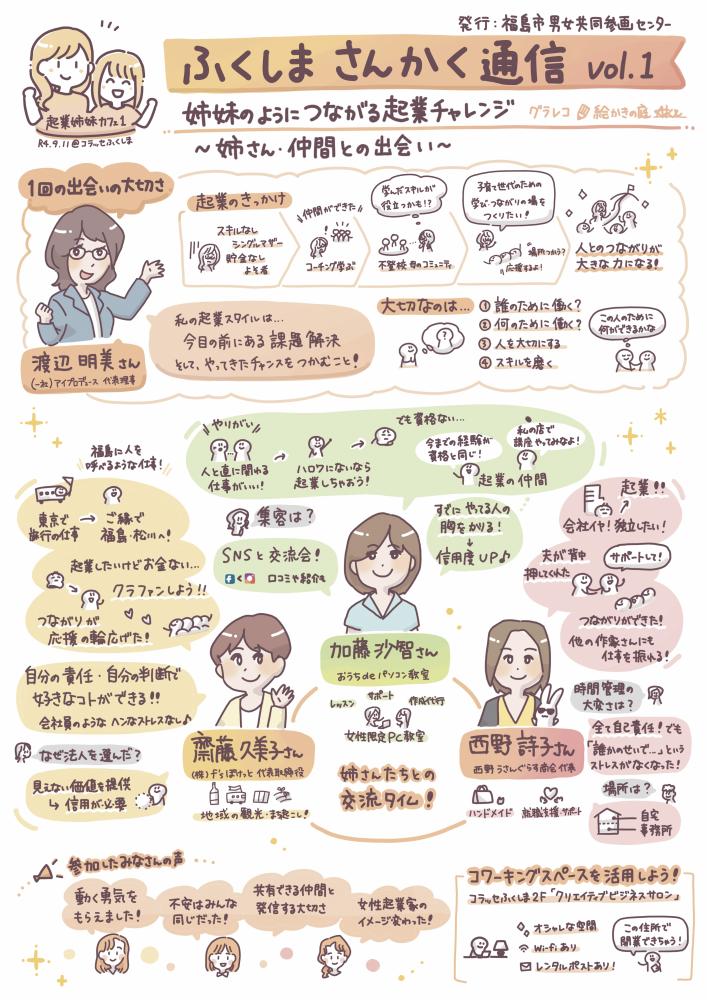 発行：福島市男女共同参画センター
ふくしま さんかく通信 vol.1
姉妹のようにつながる起業チャレンジ
グラレコ 絵かきの庭
～姉さん・仲間との出会い～
起業姉妹カフェ1
R4.9.11@コラッセふくしま
1回の出会いの大切さ
渡辺 明美さん
(一社)アイプロデュース 代表理事
起業のきっかけ
スキルなし
シングルマザー
貯金なし
よそ者
仲間ができた
コーチング学ぶ
学んだスキルが
役立つかも!?
不登校 母のコミュニティ
子育て世代のための
学び・つながりの場を
つくりたい!
場所つかう?
応援するよ!
人とのつながりが
大きな力になる!
私の起業スタイルは…
今目の前にある課題解決
そして、やってきたチャンスをつかむこと!
大切なのは…
① 誰のために働く?
② 何のために働く?
③ 人を大切にする
④ スキルを磨く
この人のために
何ができるかな
福島に人を
呼べるような仕事!
東京で
旅行の仕事
→
ご縁で
福島・松川へ!
起業したいけどお金ない…
クラファンしよう!!
つながりが
応援の輪広げた!
自分の責任・自分の判断で
好きなコトができる!!
会社員のような ヘンなストレスなし♪
なぜ法人を選んだ?
見えない価値を提供
↳ 信用が必要
齋藤 久美子さん
代表取締役
地域の観光・まち起こし!
やりがい
人と直に関わる
仕事がいい!
→
ハロワにないなら
起業しちゃおう!
→
でも資格ない…
今までの経験が
資格と同じ!
私の店で
講座やってみなよ!
起業の仲間
集客は?
SNSと交流会!
口コミや紹介も
すでにやってる人の
胸をかりる!
↓
信用度UP♪
加藤 沙智さん
おうちdeパソコン教室
レッスン
サポート
作成代行
女性限定PC教室
姉さんたちとの
交流タイム!
起業!!
会社イヤ!独立したい!
夫が背中
押してくれた
サポートして!
つながりができた!
他の作家さんにも
仕事を振れる!
西野 詩子さん
西野うさんぐらす商会 代表
ハンドメイド
就職支援・サポート
時間管理の
大変さは?
全て自己責任!でも
「誰かのせいで…」という
ストレスがなくなった!
場所は?
自宅
事務所
参加したみなさんの声
動く勇気を
もらえました!
不安はみんな
同じだった!
共有できる仲間と
発信する大切さ
女性起業家の
イメージ変わった!
コワーキングスペースを活用しよう!
コラッセふくしま2F「クリエイティブビジネスサロン」
オシャレな空間
Wi-Fiあり
レンタルポストあり!
この住所で
開業できちゃう!